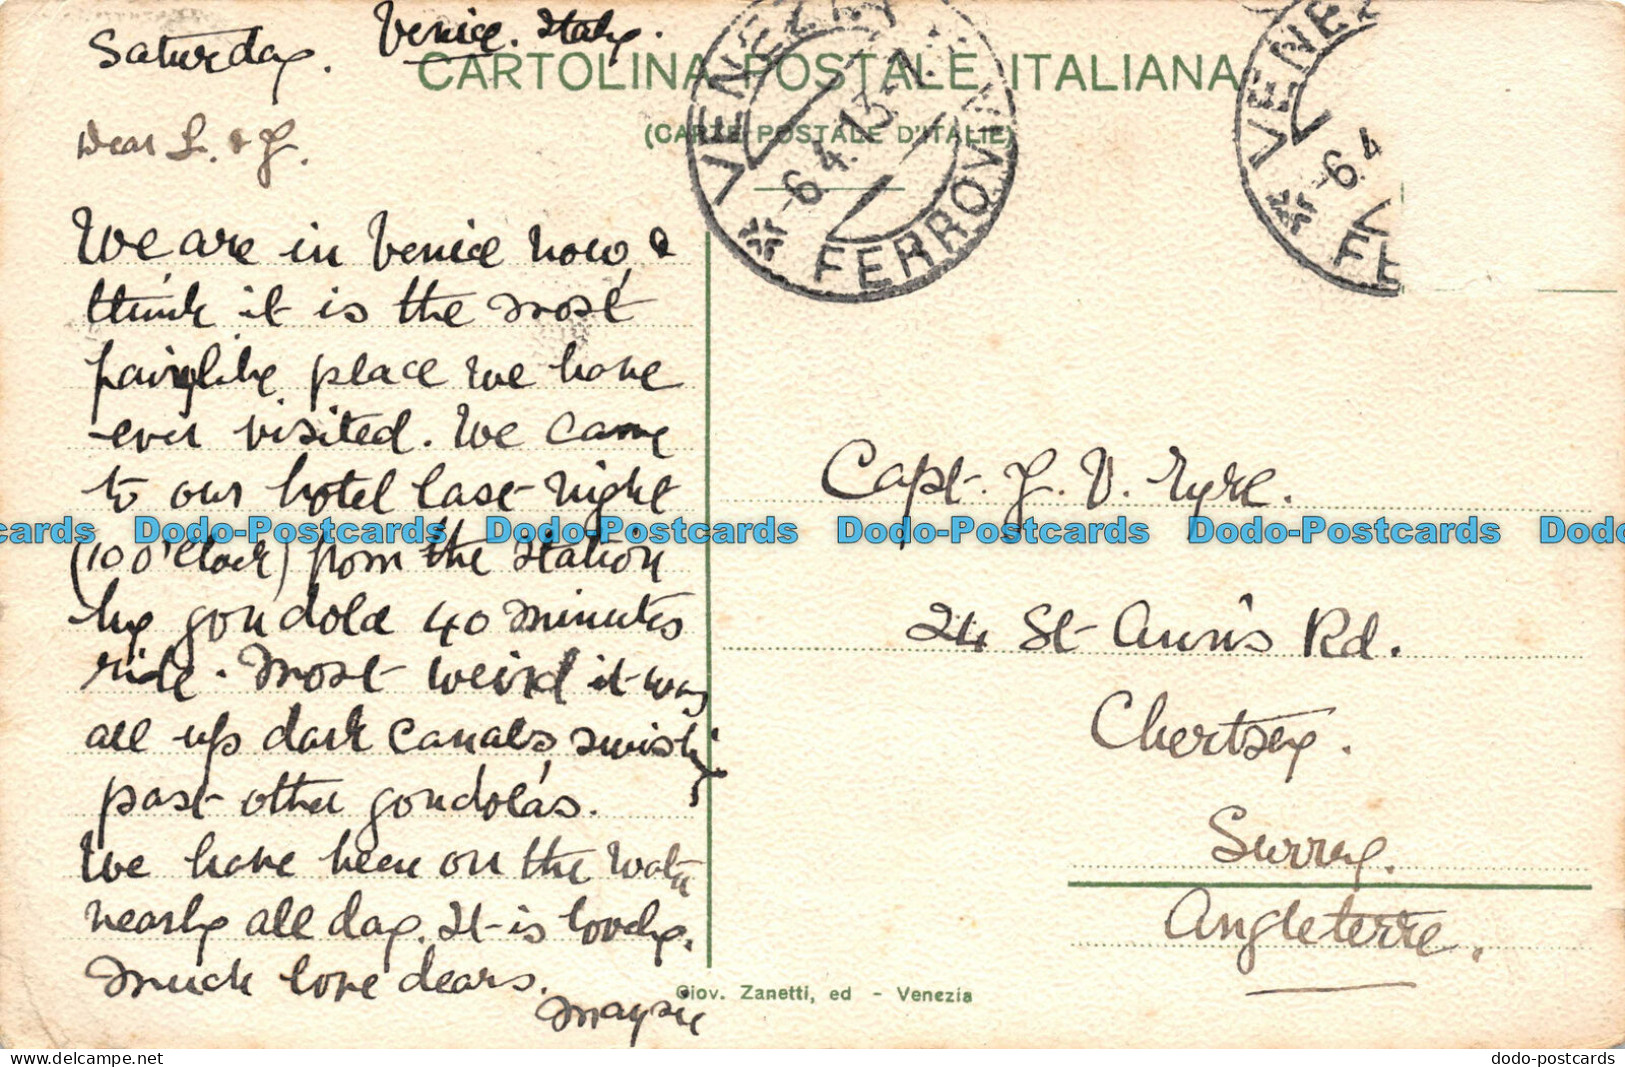 Saturday. Venice. Italy.
CARTOLINA POSTALE ITALIANA
(CARTE POSTALE D'ITALIE)
VENEZIA
-6.4.13
FERROVIA
VENEZ
-6.4
FE
Dear L. & J.
We are in Venice now, &
think it is the most
fairylike place we have
ever visited. We came
to our hotel last night
(10 o'clock) from the station
by gondola 40 minutes
ride. Most weird it was
all up dark canals, swishing
past other gondola's.
We have been on the water
nearly all day. It is lovely.
Much love dears.
Maysie
Capt. J. V. Eyre.
24 St Ann's Rd.
Chertsey.
Surrey.
Angleterre.
Giov. Zanetti, ed - Venezia
cards Dodo-Postcards Dodo-Postcards Dodo-Postcards Dodo-Postcards Dodo-
www.delcampe.net dodo-postcards